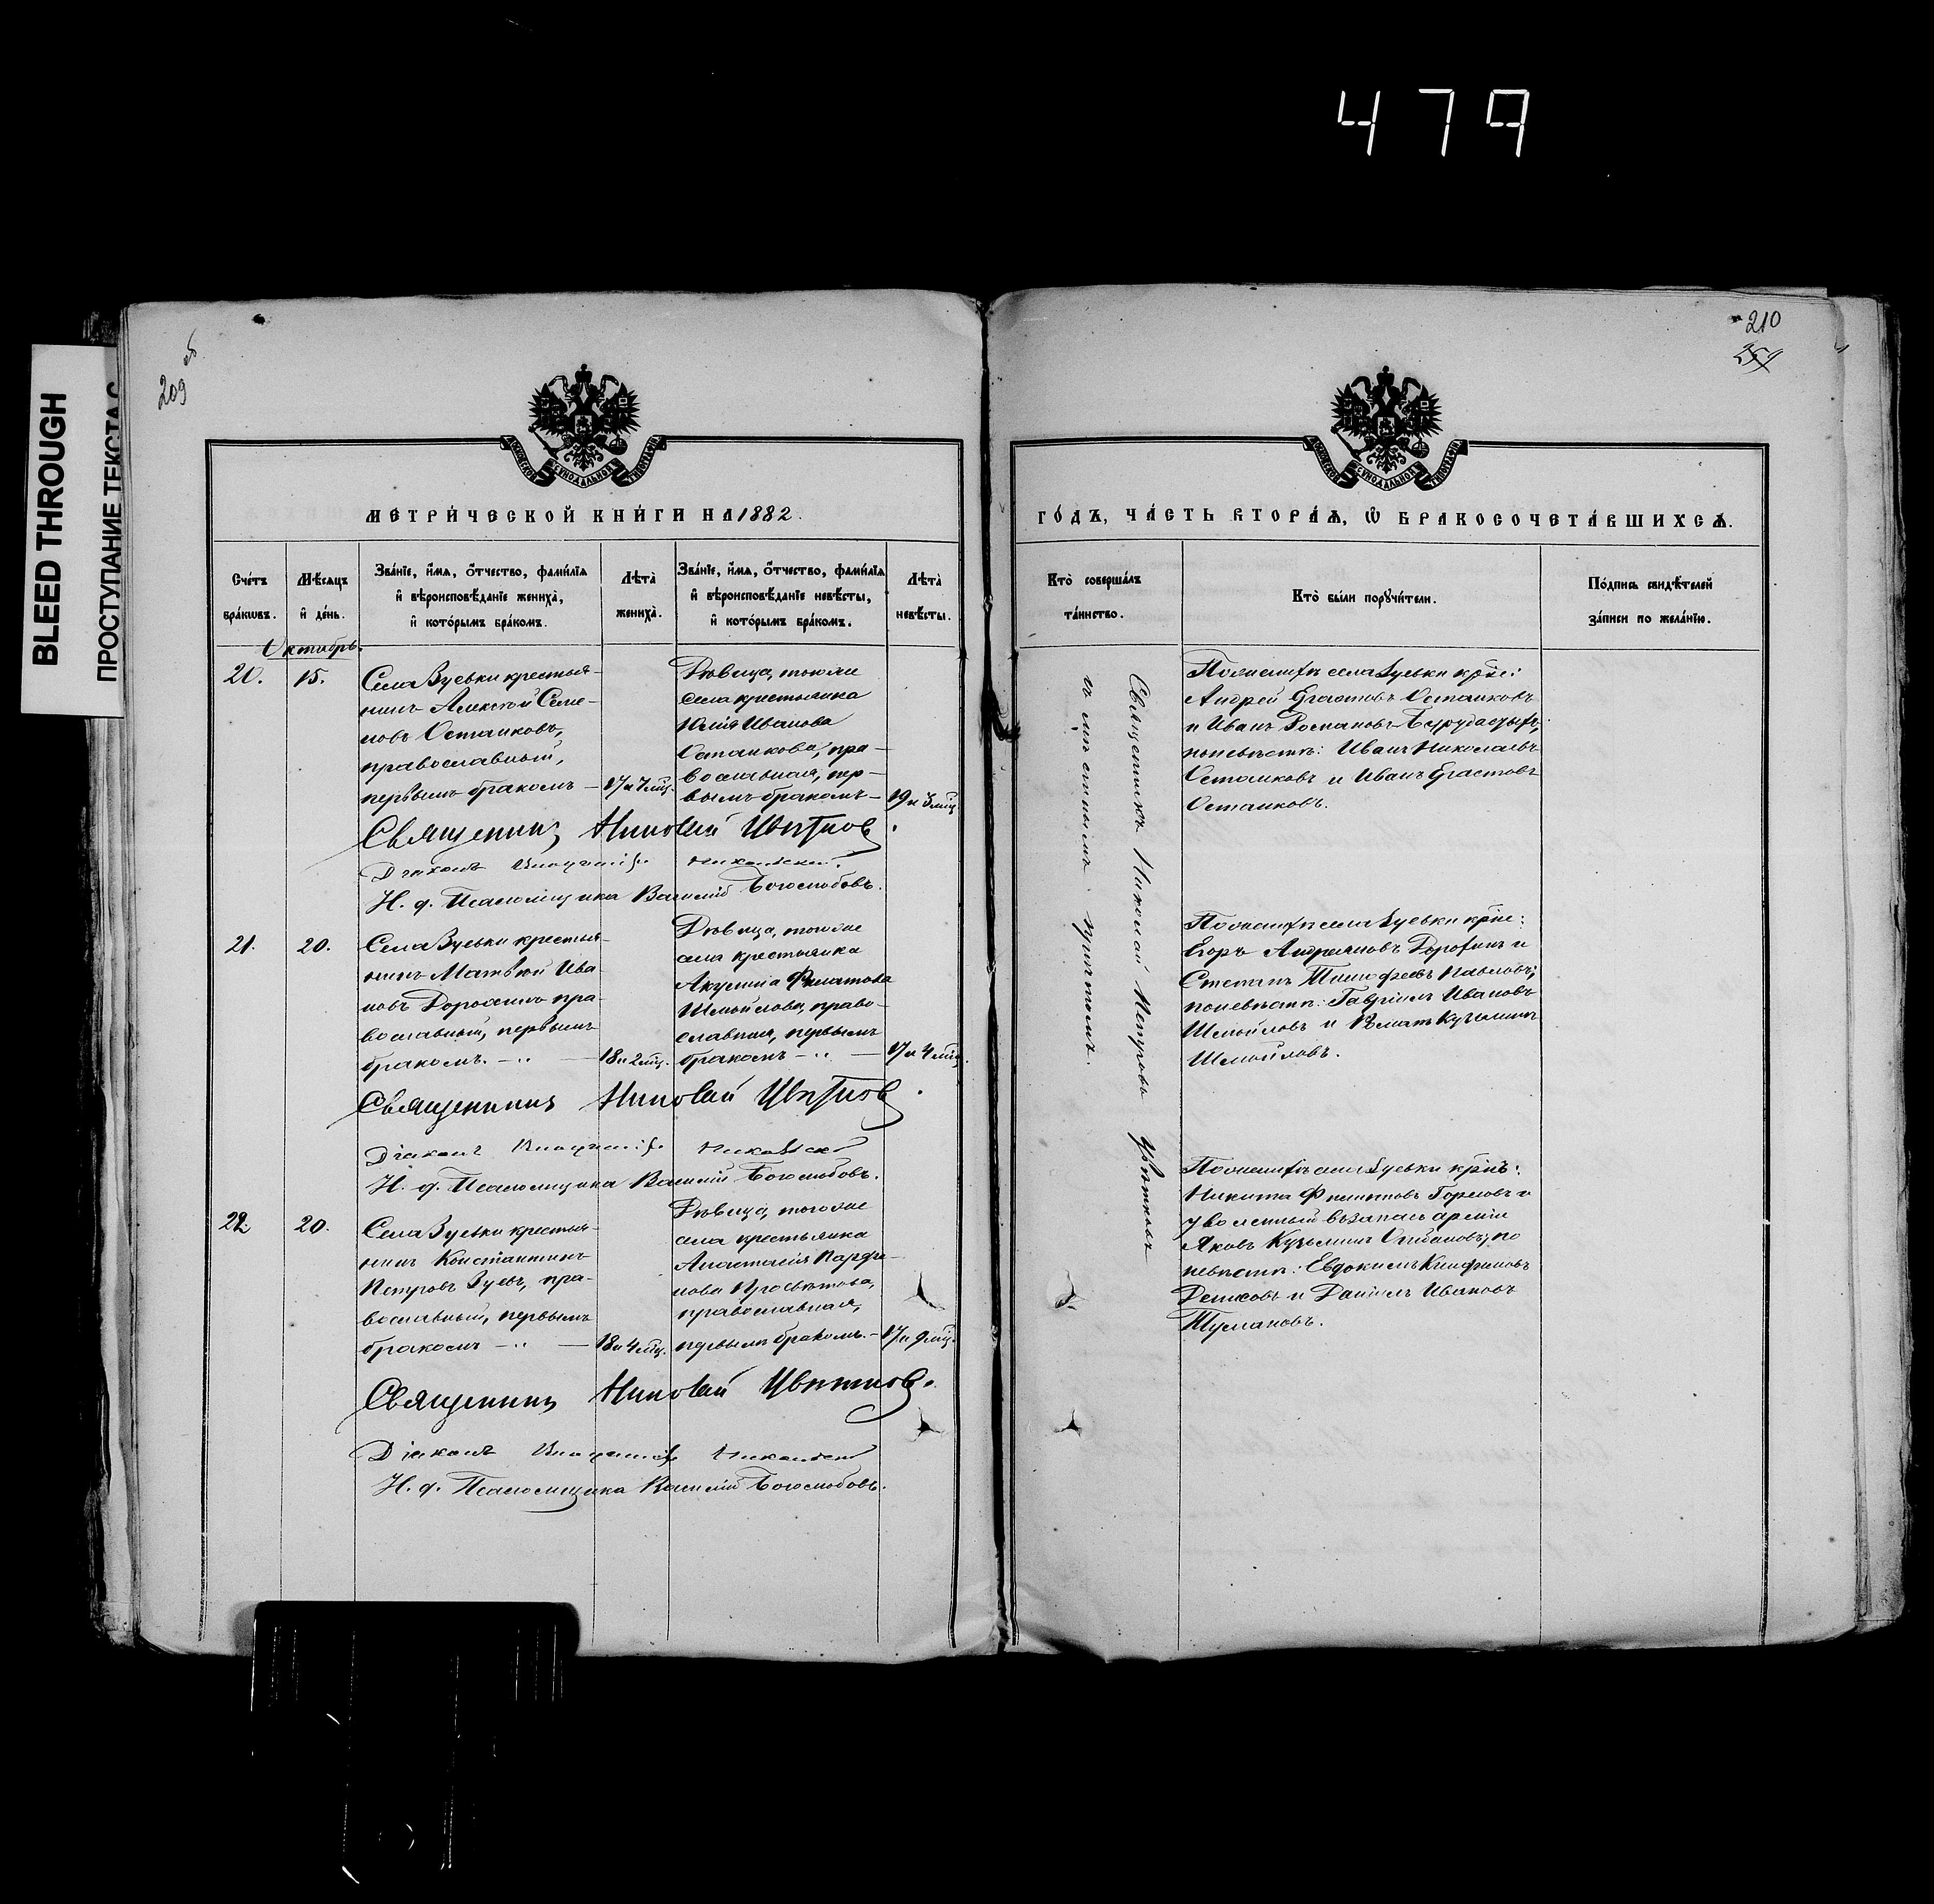 479
BLEED THROUGH
ПРОСТУПАНИЕ ТЕКСТА С
209 об
210
МОСКОВСКОЙ СѴНОДАЛЬНОЙ ТИПОГРАФІИ
МЕТРИ́ЧЕСКОЙ КНИ́ГИ НА 1882.
Сче́тъ бра́кωвъ.
Мѣ́сяцъ и҆ де́нь.
Зва́нїе, и҆́мѧ, о҆́тчество, фами́лїѧ
и҆ вѣроисповѣ́данїе жениха̀,
и҆ кото́рымъ бра́комъ.
Лѣ́та̀ жениха̀.
Зва́нїе, и҆́мѧ, о҆́тчество, фами́лїѧ
и҆ вѣроисповѣ́данїе невѣ́сты,
и҆ кото́рымъ бра́комъ.
Лѣ́та̀ невѣ́сты.
Октябрь.
20.
15.
Села Зуевки крестья-
нинъ Алексѣй Семе-
новъ Останковъ,
православный,
первымъ бракомъ —
17 и 7 мц.
Дѣвица, того же
села крестьянка
Юлія Иванова
Останкова, пра-
вославная, пер-
вымъ бракомъ —
19 и 3 мц.
Священникъ Николай Цвѣтков
Діаконъ Никольскій
И. д. Псаломщика Василій Боголюбовъ.
21.
20.
Села Зуевки крестья-
нинъ Матвѣй Ива-
новъ Дорофинъ пра-
вославный, первымъ
бракомъ. — „ —
18 и 2 мц.
Дѣвица, того же
села крестьянка
Акулина Филатова
Шмойлова, право-
славная, первымъ
бракомъ — „ —
17 и 4 мц.
Священникъ Николай Цвѣтков
Діаконъ Никольскій
И. д. Псаломщика Василій Боголюбовъ.
22.
20.
Села Зуевки крестья-
нинъ Константинъ
Петровъ Зуевъ, пра-
вославный, первымъ
бракомъ — „ —
18 и 4 мц.
Дѣвица, того же
села крестьянка
Анастасія Парфе-
нова Просвѣтова,
православная,
первымъ бракомъ. —
17 и 9 мц.
Священникъ Николай Цвѣтков.
Діаконъ Никольскій
И. д. Псаломщика Василій Боголюбовъ.
ГО́ДЪ, ЧА́СТЬ ВТОРА́Ѧ, Ѡ҆ БРАКОСОЧЕТА́ВШИХСѦ.
Кто̀ соверша́лъ
та́инство.
Кто̀ бы́ли порꙋчи́тели.
По́дпись свидѣ́телей
за́писи по жела́нїю.
Священникъ Николай Петровъ Цвѣтковъ
съ причтомъ.
По женихѣ села Зуевки крⷭ҇не:
Андрей Ерастовъ Останковъ
и Иванъ Романовъ
по невѣстѣ: Иванъ Николаевъ
Останковъ и Иванъ Ерастовъ
Останковъ.
По женихѣ села Зуевки крⷭ҇не:
Егоръ Андреяновъ Дорофинъ и
Степанъ Тимофеевъ Павловъ;
по невѣстѣ: Гавріилъ Ивановъ
Шмойловъ и Кузьминъ
Шмойловъ.
По женихѣ села Зуевки крⷭ҇не:
Никита Филиповъ Горловъ и
уволенный въ запасъ арміи
Яковъ Кузьминъ по
невѣстѣ: Евдокимъ
Денисовъ и Даніилъ Ивановъ
Тумановъ.